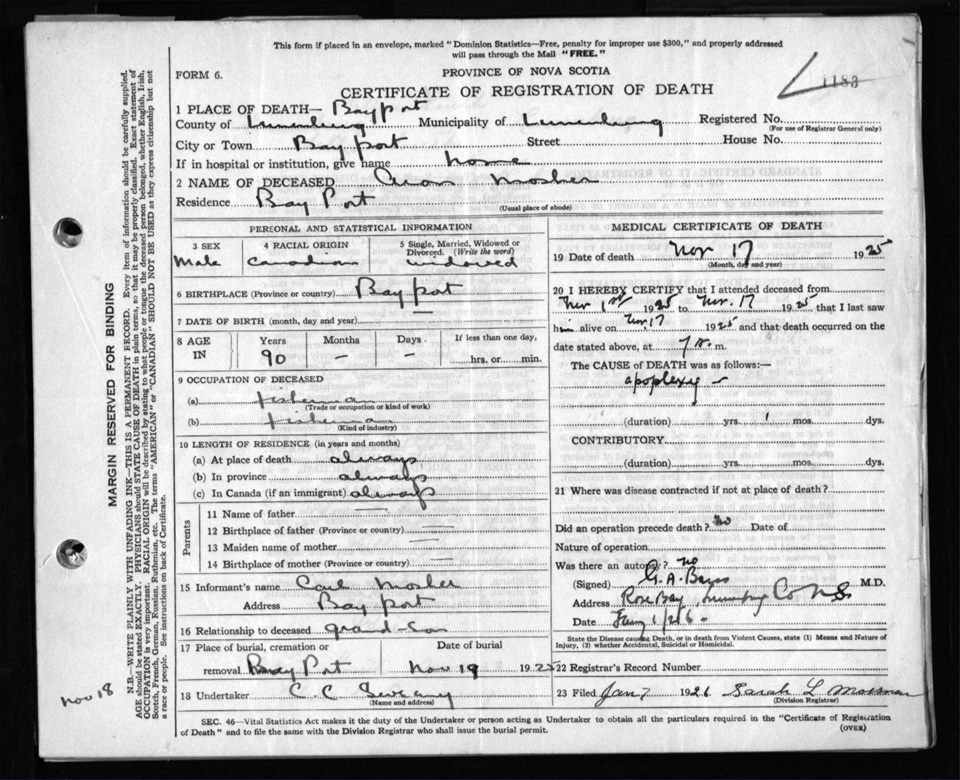 This form if placed in an envelope, marked "Dominion Statistics—Free, penalty for improper use $300," and properly addressed
will pass through the Mail "FREE."
FORM 6.
PROVINCE OF NOVA SCOTIA
1183
CERTIFICATE OF REGISTRATION OF DEATH
1 PLACE OF DEATH— Bayport
County of Lunenburg Municipality of Lunenburg Registered No.
(For use of Registrar General only)
City or Town Bay Port Street House No.
If in hospital or institution, give name home
2 NAME OF DECEASED Mosher
Residence Bay Port
(Usual place of abode)
PERSONAL AND STATISTICAL INFORMATION
3 SEX 4 RACIAL ORIGIN 5 Single, Married, Widowed or
Divorced. (Write the word)
Male Canadian widowed
6 BIRTHPLACE (Province or country) Bay Port
7 DATE OF BIRTH (month, day and year)
8 AGE IN Years Months Days If less than one day,
90 — — hrs. or min.
9 OCCUPATION OF DECEASED
(a) fisherman
(Trade or occupation or kind of work)
(b) fisherman
(Kind of industry)
10 LENGTH OF RESIDENCE (in years and months)
(a) At place of death always
(b) In province always
(c) In Canada (if an immigrant) always
Parents
11 Name of father
12 Birthplace of father (Province or country)
13 Maiden name of mother
14 Birthplace of mother (Province or country)
15 Informant's name Carl Mosher
Address Bay Port
16 Relationship to deceased grand-son
17 Place of burial, cremation or Date of burial
removal Bay Port Nov 19 1925
18 Undertaker C. C.
(Name and address)
MEDICAL CERTIFICATE OF DEATH
19 Date of death Nov 17 1925
(Month, day and year)
20 I HEREBY CERTIFY that I attended deceased from
Nov 1st 1925 to Nov. 17 1925 that I last saw
him alive on Nov 17 1925 and that death occurred on the
date stated above, at 7 a. m.
The CAUSE of DEATH was as follows:—
apoplexy —
(duration) yrs. mos. dys.
CONTRIBUTORY
(duration) yrs. mos. dys.
21 Where was disease contracted if not at place of death?
Did an operation precede death? no Date of
Nature of operation
Was there an autopsy? no
(Signed) G. A. M.D.
Address Rose Bay, Lunenburg Co N S
Date
State the Disease causing Death, or in death from Violent Causes, state (1) Means and Nature of
Injury, (2) whether Accidental, Suicidal or Homicidal.
22 Registrar's Record Number
23 Filed Jan 7 1926 Sarah L Mossman
(Division Registrar)
SEC. 46—Vital Statistics Act makes it the duty of the Undertaker or person acting as Undertaker to obtain all the particulars required in the "Certificate of Registration
of Death" and to file the same with the Division Registrar who shall issue the burial permit.
(OVER)
MARGIN RESERVED FOR BINDING
N.B.—WRITE PLAINLY WITH UNFADING INK—THIS IS A PERMANENT RECORD. Every item of information should be carefully supplied.
AGE should be stated EXACTLY. PHYSICIANS should STATE CAUSE OF DEATH in plain terms, so that it may be properly classified. Exact statement of
OCCUPATION is very important. RACIAL ORIGIN will be described by stating to what people or tongue the deceased person belonged, whether English, Irish,
Scotch, French, German, Russian, Ruthenian, etc. The terms "AMERICAN" or "CANADIAN" SHOULD NOT BE USED as they express citizenship but not
a race or people. See instructions on back of Certificate.
Nov 18